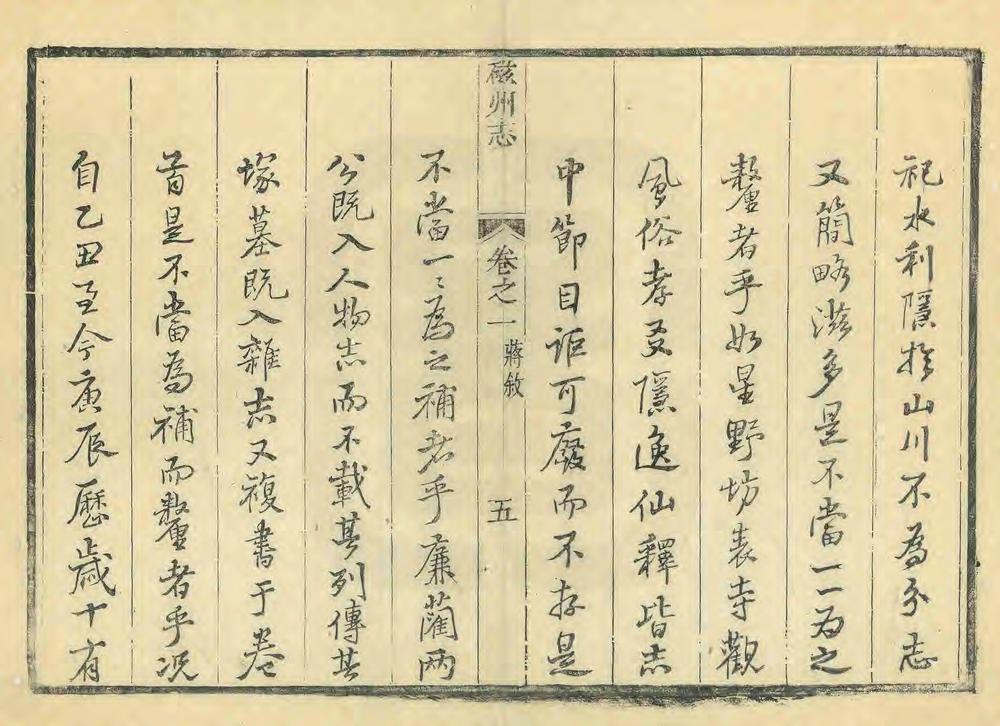 祀水利隱於山川不為分志
又簡略滋多是不當一一為之
釐者乎如星野坊表寺觀
風俗孝友隱逸仙釋皆志
中節目詎可廢而不存是
磁州志 卷之一 蔣敘 五
不當一〻為之補者乎廉藺兩
公既入人物志而不載其列傳其
塚墓既入雜志又複書于卷
首是不當為補而釐者乎况
自乙丑至今庚辰歷歲十有